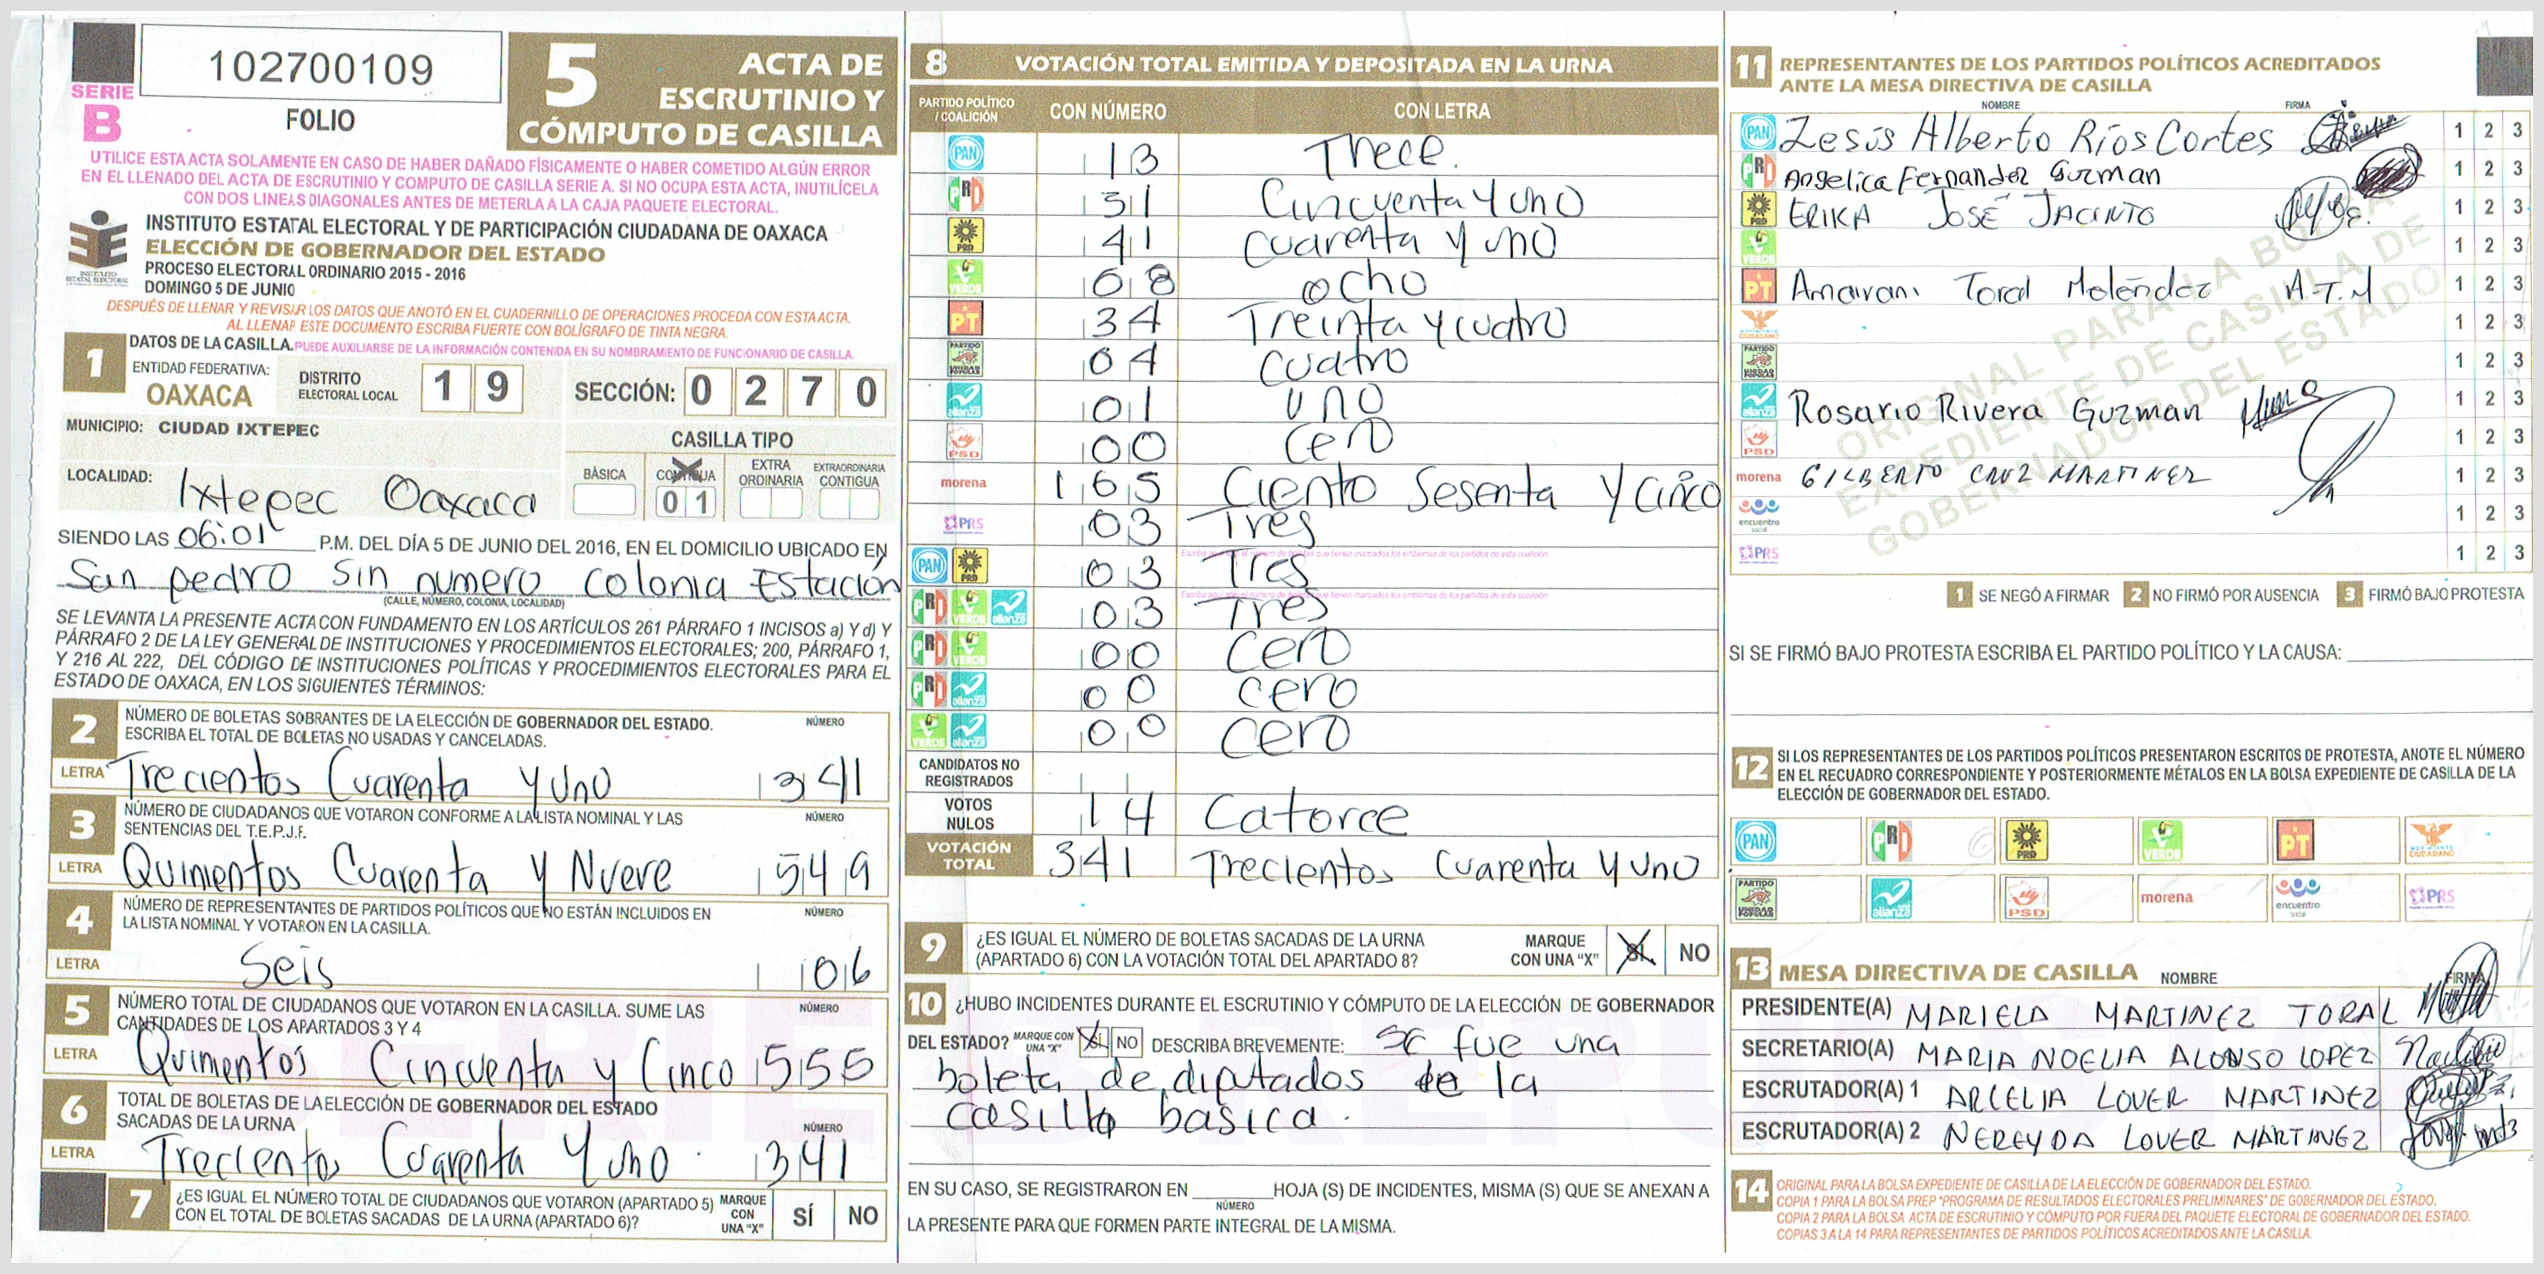 SERIE
B
102700109
FOLIO
5 ACTA DE
ESCRUTINIO Y
CÓMPUTO DE CASILLA
UTILICE ESTA ACTA SOLAMENTE EN CASO DE HABER DAÑADO FÍSICAMENTE O HABER COMETIDO ALGÚN ERROR
EN EL LLENADO DEL ACTA DE ESCRUTINIO Y COMPUTO DE CASILLA SERIE A. SI NO OCUPA ESTA ACTA, INUTILÍCELA
CON DOS LINEAS DIAGONALES ANTES DE METERLA A LA CAJA PAQUETE ELECTORAL.
INSTITUTO ESTATAL ELECTORAL Y DE PARTICIPACIÓN CIUDADANA DE OAXACA
ELECCIÓN DE GOBERNADOR DEL ESTADO
PROCESO ELECTORAL ORDINARIO 2015 - 2016
DOMINGO 5 DE JUNIO
DESPUÉS DE LLENAR Y REVISAR LOS DATOS QUE ANOTÓ EN EL CUADERNILLO DE OPERACIONES PROCEDA CON ESTA ACTA.
AL LLENAR ESTE DOCUMENTO ESCRIBA FUERTE CON BOLÍGRAFO DE TINTA NEGRA.
1 DATOS DE LA CASILLA. PUEDE AUXILIARSE DE LA INFORMACIÓN CONTENIDA EN SU NOMBRAMIENTO DE FUNCIONARIO DE CASILLA.
ENTIDAD FEDERATIVA:
OAXACA
DISTRITO
ELECTORAL LOCAL
1 9
SECCIÓN: 0 2 7 0
MUNICIPIO: CIUDAD IXTEPEC
CASILLA TIPO
LOCALIDAD: Ixtepec Oaxaca
BÁSICA
CONTIGUA
0 1
EXTRA
ORDINARIA
EXTRAORDINARIA
CONTIGUA
SIENDO LAS 06:01 P.M. DEL DÍA 5 DE JUNIO DEL 2016, EN EL DOMICILIO UBICADO EN
San pedro sin numero colonia Estación
(CALLE, NÚMERO, COLONIA, LOCALIDAD)
SE LEVANTA LA PRESENTE ACTA CON FUNDAMENTO EN LOS ARTÍCULOS 261 PÁRRAFO 1 INCISOS a) Y d) Y
PÁRRAFO 2 DE LA LEY GENERAL DE INSTITUCIONES Y PROCEDIMIENTOS ELECTORALES; 200, PÁRRAFO 1,
Y 216 AL 222, DEL CÓDIGO DE INSTITUCIONES POLÍTICAS Y PROCEDIMIENTOS ELECTORALES PARA EL
ESTADO DE OAXACA, EN LOS SIGUIENTES TÉRMINOS:
2 NÚMERO DE BOLETAS SOBRANTES DE LA ELECCIÓN DE GOBERNADOR DEL ESTADO.
ESCRIBA EL TOTAL DE BOLETAS NO USADAS Y CANCELADAS.
NÚMERO
LETRA Trecientos Cuarenta y uno 341
3 NÚMERO DE CIUDADANOS QUE VOTARON CONFORME A LA LISTA NOMINAL Y LAS
SENTENCIAS DEL T.E.P.J.F.
NÚMERO
LETRA Quinientos Cuarenta y Nueve 549
4 NÚMERO DE REPRESENTANTES DE PARTIDOS POLÍTICOS QUE NO ESTÁN INCLUIDOS EN
LA LISTA NOMINAL Y VOTARON EN LA CASILLA.
NÚMERO
LETRA Seis 06
5 NÚMERO TOTAL DE CIUDADANOS QUE VOTARON EN LA CASILLA. SUME LAS
CANTIDADES DE LOS APARTADOS 3 Y 4
NÚMERO
LETRA Quinientos Cincuenta y Cinco 555
6 TOTAL DE BOLETAS DE LA ELECCIÓN DE GOBERNADOR DEL ESTADO
SACADAS DE LA URNA
NÚMERO
LETRA Trecientos Cuarenta y uno. 341
7 ¿ES IGUAL EL NÚMERO TOTAL DE CIUDADANOS QUE VOTARON (APARTADO 5)
CON EL TOTAL DE BOLETAS SACADAS DE LA URNA (APARTADO 6)?
MARQUE
CON
UNA "X"
SÍ NO
8 VOTACIÓN TOTAL EMITIDA Y DEPOSITADA EN LA URNA
PARTIDO POLÍTICO
/ COALICIÓN
CON NÚMERO CON LETRA
PAN 13 Threce.
PRI 51 Cincuenta y uno
PRD 41 Cuarenta y uno
VERDE 08 ocho
PT 34 Treinta y cuatro
PARTIDO UNIDAD POPULAR 04 cuatro
alianza 01 uno
PSD 00 cero
morena 165 Ciento Sesenta y cinco
PRS 03 Tres
PAN PRD 03 Tres
PRI VERDE alianza 03 Tres
PRI VERDE 00 cero
PRI alianza 00 cero
VERDE alianza 00 cero
CANDIDATOS NO
REGISTRADOS
VOTOS
NULOS
14 Catorce
VOTACIÓN
TOTAL
341 Trecientos Cuarenta y uno
9 ¿ES IGUAL EL NÚMERO DE BOLETAS SACADAS DE LA URNA
(APARTADO 6) CON LA VOTACIÓN TOTAL DEL APARTADO 8?
MARQUE
CON UNA "X"
SÍ NO
10 ¿HUBO INCIDENTES DURANTE EL ESCRUTINIO Y CÓMPUTO DE LA ELECCIÓN DE GOBERNADOR
DEL ESTADO? MARQUE CON UNA "X" SÍ NO DESCRIBA BREVEMENTE: se fue una
boleta de diputados de la
casilla basica.
EN SU CASO, SE REGISTRARON EN ________ HOJA (S) DE INCIDENTES, MISMA (S) QUE SE ANEXAN A
NÚMERO
LA PRESENTE PARA QUE FORMEN PARTE INTEGRAL DE LA MISMA.
11 REPRESENTANTES DE LOS PARTIDOS POLÍTICOS ACREDITADOS
ANTE LA MESA DIRECTIVA DE CASILLA
NOMBRE FIRMA
PAN Jesús Alberto Ríos Cortes 1 2 3
PRI Angelica Fernandez Guzman 1 2 3
PRD ERIKA JOSÉ JACINTO 1 2 3
VERDE 1 2 3
PT Amairani Toral Meléndez A.T.M 1 2 3
1 2 3
PARTIDO UNIDAD POPULAR 1 2 3
alianza Rosario Rivera Guzman 1 2 3
PSD 1 2 3
morena GILBERTO CRUZ MARTINEZ 1 2 3
encuentro social 1 2 3
PRS 1 2 3
ORIGINAL PARA LA BOLSA
EXPEDIENTE DE CASILLA DE
GOBERNADOR DEL ESTADO
1 SE NEGÓ A FIRMAR 2 NO FIRMÓ POR AUSENCIA 3 FIRMÓ BAJO PROTESTA
SI SE FIRMÓ BAJO PROTESTA ESCRIBA EL PARTIDO POLÍTICO Y LA CAUSA:
12 SI LOS REPRESENTANTES DE LOS PARTIDOS POLÍTICOS PRESENTARON ESCRITOS DE PROTESTA, ANOTE EL NÚMERO
EN EL RECUADRO CORRESPONDIENTE Y POSTERIORMENTE MÉTALOS EN LA BOLSA EXPEDIENTE DE CASILLA DE LA
ELECCIÓN DE GOBERNADOR DEL ESTADO.
PAN PRI PRD VERDE PT CIUDADANO
PARTIDO UNIDAD POPULAR alianza PSD morena encuentro social PRS
13 MESA DIRECTIVA DE CASILLA NOMBRE FIRMA
PRESIDENTE(A) MARIELA MARTINEZ TORAL
SECRETARIO(A) MARIA NOELIA ALONSO LOPEZ
ESCRUTADOR(A) 1 ARCELIA LOVER MARTINEZ
ESCRUTADOR(A) 2 NEREYDA LOVER MARTINEZ
14 ORIGINAL PARA LA BOLSA EXPEDIENTE DE CASILLA DE LA ELECCIÓN DE GOBERNADOR DEL ESTADO.
COPIA 1 PARA LA BOLSA PREP "PROGRAMA DE RESULTADOS ELECTORALES PRELIMINARES" DE GOBERNADOR DEL ESTADO.
COPIA 2 PARA LA BOLSA ACTA DE ESCRUTINIO Y CÓMPUTO POR FUERA DEL PAQUETE ELECTORAL DE GOBERNADOR DEL ESTADO.
COPIAS 3 A LA 14 PARA REPRESENTANTES DE PARTIDOS POLÍTICOS ACREDITADOS ANTE LA CASILLA.